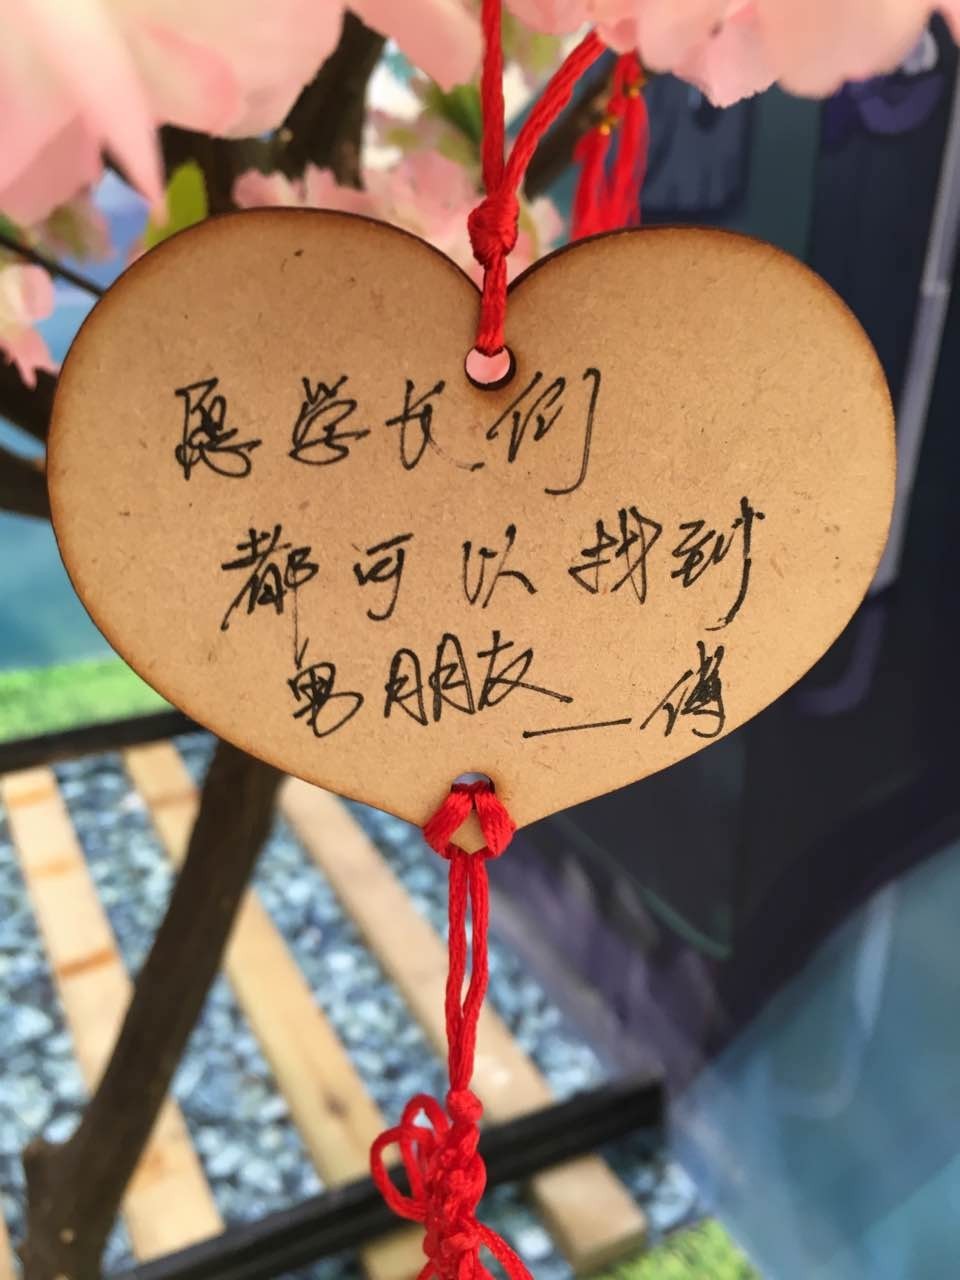 愿学长们
都可以找到
男朋友